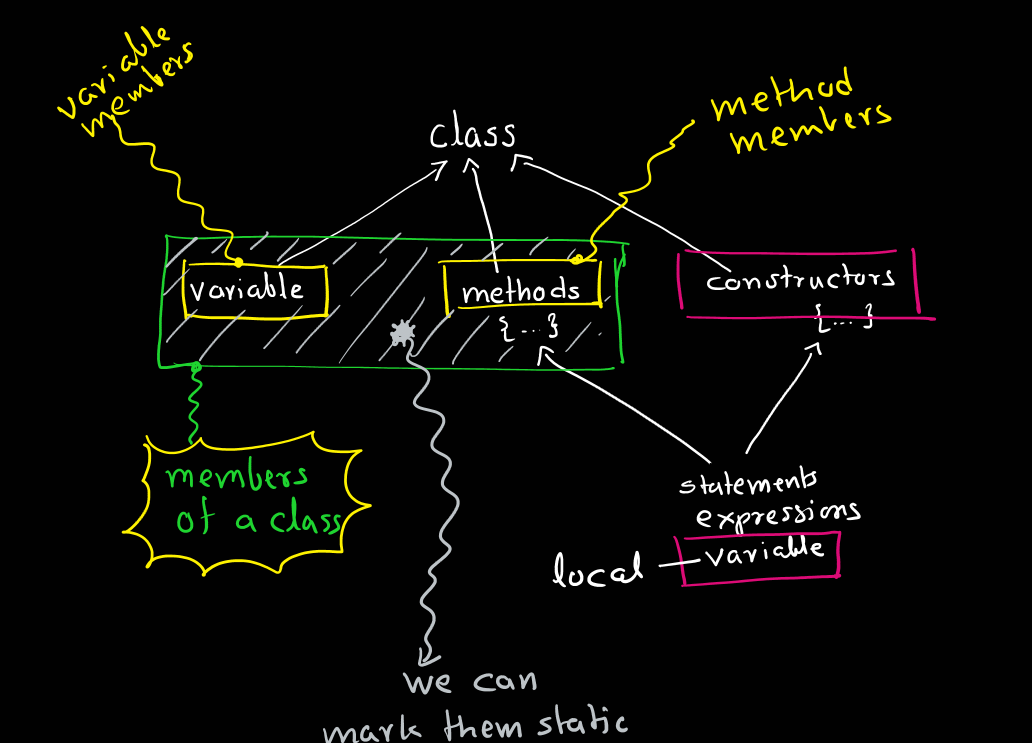 variable
members
method
members
class
variable
methods
{ ... }
constructors
{ ... }
members
of a class
statements
expressions
local
variable
we can
mark them static